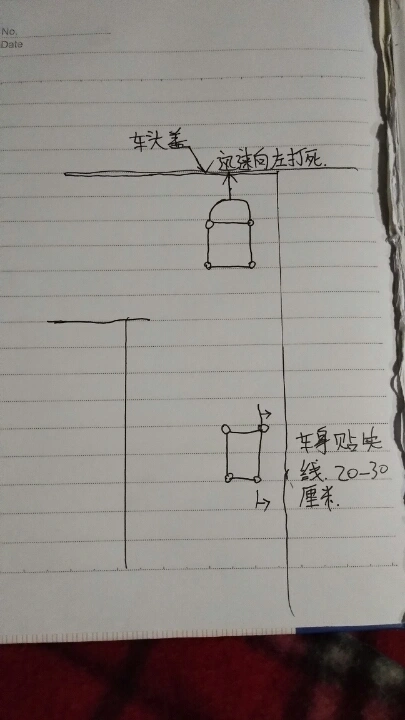 No.
Date
车头盖
迅速向左打死.
车身贴实
线.20-30
厘米.